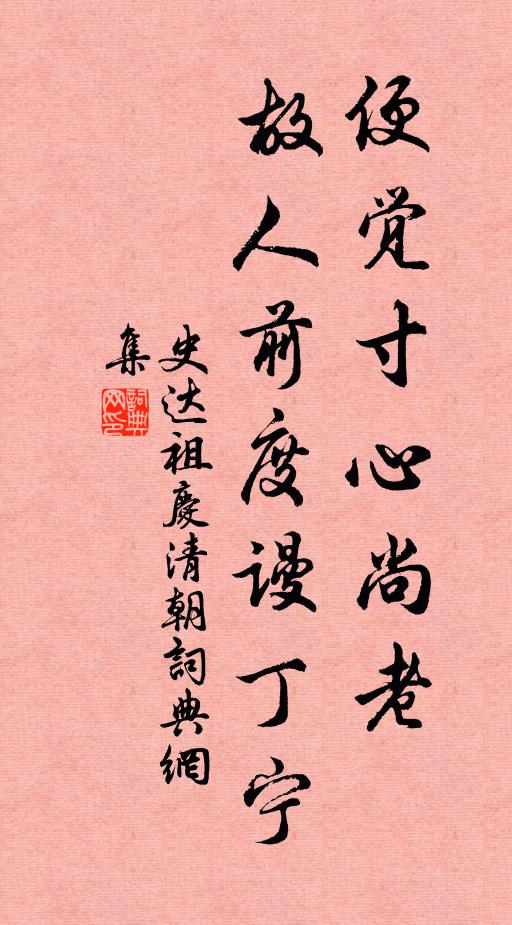 便觉寸心尚老
故人前度谩丁宁
史达祖慶清朝詞典網
集
詞典网印